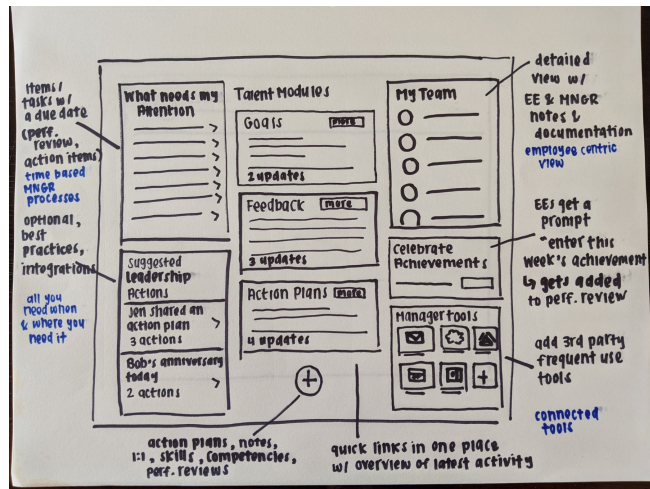 items/
tasks w/
a due date
(perf.
review,
action items)
time based
MNGR
processes
optional,
best
practices,
integrations
all you
need when
& where you
need it
What needs my
Attention
Suggested
Leadership
Actions
Jen shared an
action plan
3 actions
Bob's anniversary
today
2 actions
Talent Modules
Goals more
2 updates
Feedback more
3 updates
Action Plans more
4 updates
+
My Team
Celebrate
Achievements
Manager tools
+
detailed
view w/
EE & MNGR
notes &
documentation
employee centric
view
EEs get a
prompt
"enter this
week's achievement
↳ gets added
to perf. review
add 3rd party
frequent use
tools
connected
tools
action plans, notes,
1:1, skills, competencies,
perf. reviews
quick links in one place
w/ overview of latest activity